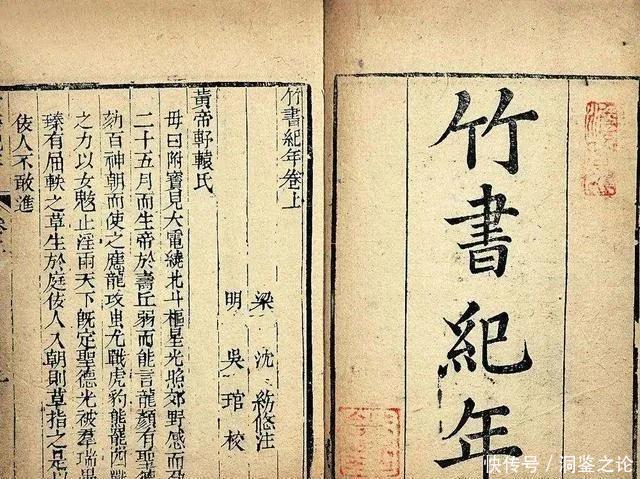 竹書紀年
竹書紀年卷上
梁 沈約附注
明 吳琯校
黃帝軒轅氏
母曰附寶見大電繞北斗樞星光照郊野感而孕
二十五月而生帝於壽丘弱而能言龍顏有聖德
劾百神朝而使之應龍攻蚩尤戰虎豹熊羆四
之力以女魃止淫雨天下既定聖德光被羣瑞畢
臻有屈軼之草生於庭佞人入朝則草指之是以
佞人不敢進
快传号/洞鉴之论